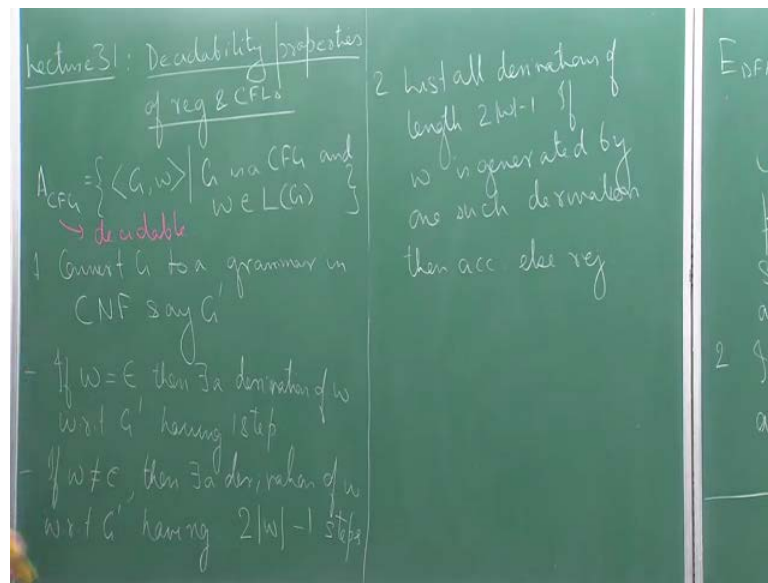 Lecture 31: Decidability properties
of reg & CFLs
A_CFG = { <G, w> | G is a CFG and
w ∈ L(G) }
→ decidable
1 Convert G to a grammar in
CNF say G'
- If w = ϵ then ∃ a derivation of w
w.r.t G' having 1 step
- If w ≠ ϵ, then ∃ a derivation of w
w.r.t G' having 2|w| - 1 steps
2 List all derivations of
length 2|w| - 1 If
w is generated by
one such derivation
then acc else rej
E_DF
2